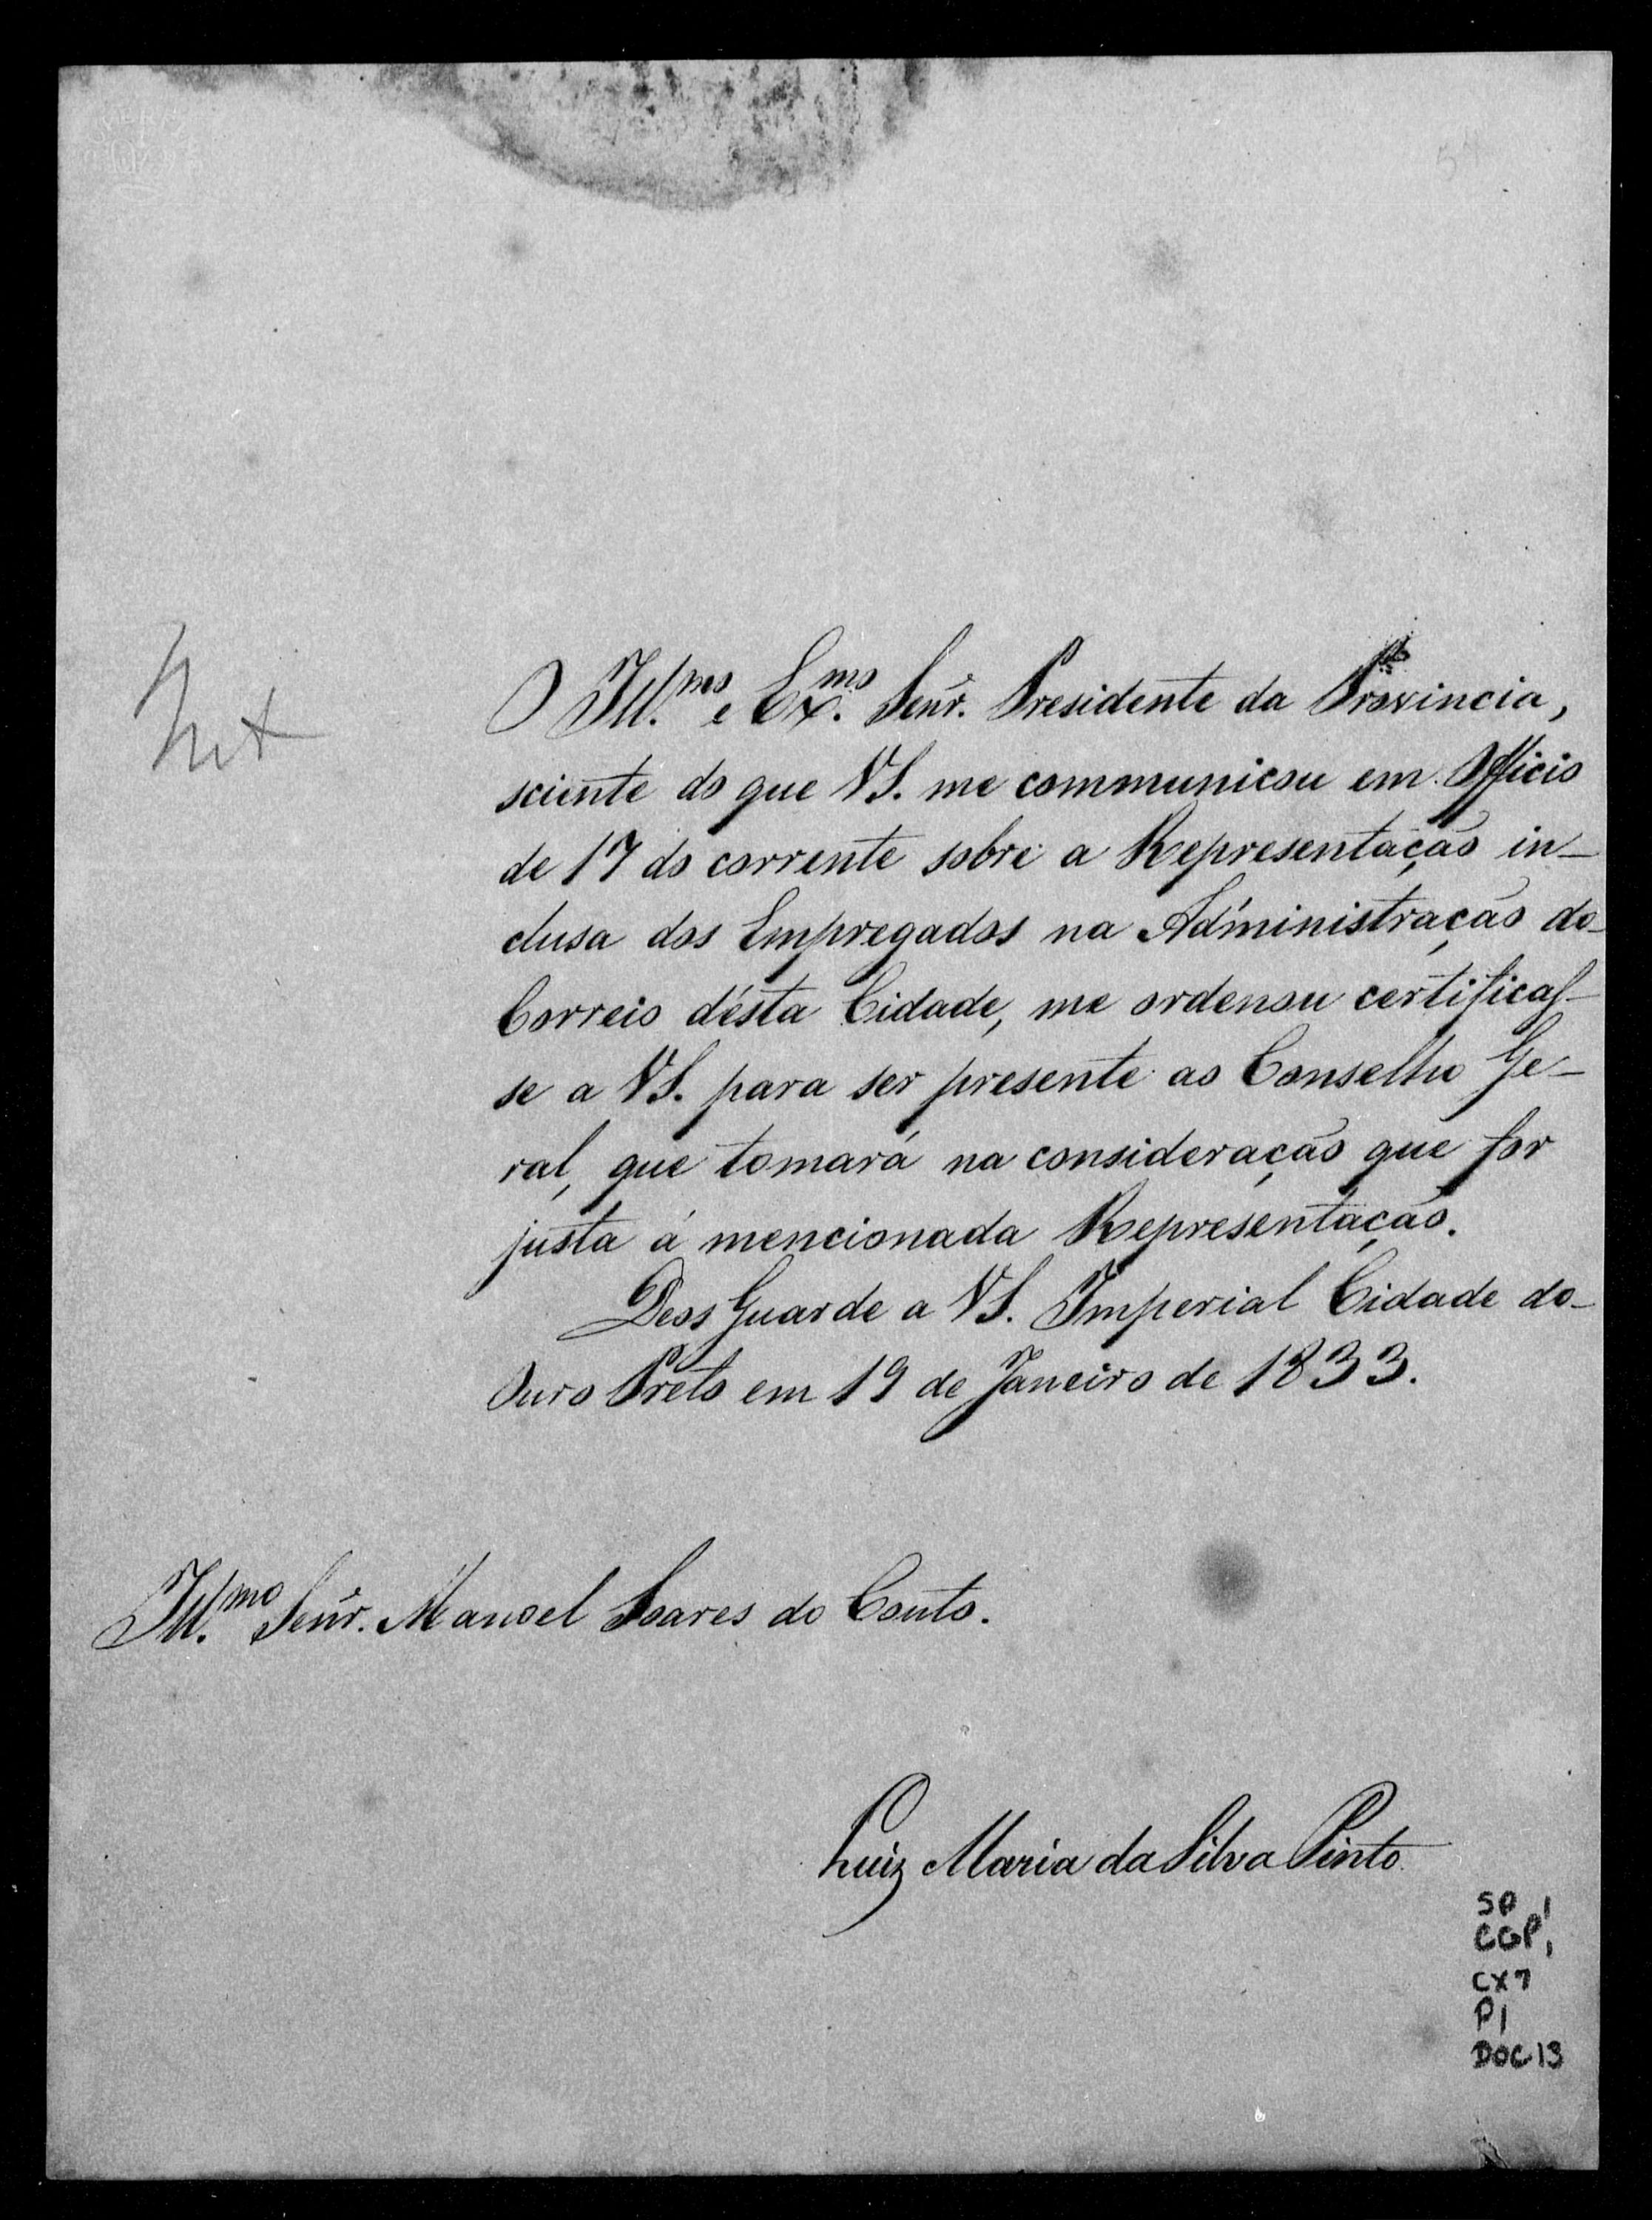 O Ill.mo e Ex.mo Senr. Presidente da Provincia,
sciente do que VS. me communicou em Officio
de 17 do corrente sobre a Representação in-
clusa dos Empregados na Administração do
Correio d'esta Cidade, me ordenou certificas-
se a VS. para ser presente ao Conselho Ge-
ral, que tomará na consideração que for
justa á mencionada Representação.
Deos Guarde a VS. Imperial Cidade do
Ouro Preto em 19 de Janeiro de 1833.
Ill.mo Senr. Manoel Soares do Couto.
Luiz Maria da Silva Pinto
SP 1
CGP 1
CX 7
P1
DOC 13